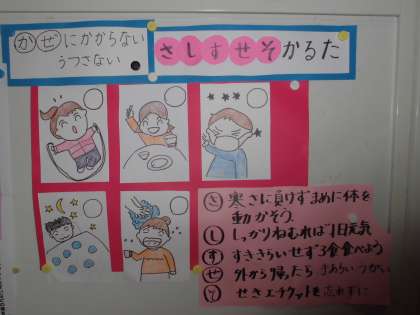 かぜにかからない
うつさない
さしすせそかるた
さ 寒さに負けずまめに体を
動かそう。
し しっかりねむれば1日元気
す すききらいせず3食食べよう
せ 外から帰ったら 手あらいうがい
そ せきエチケットを忘れずに